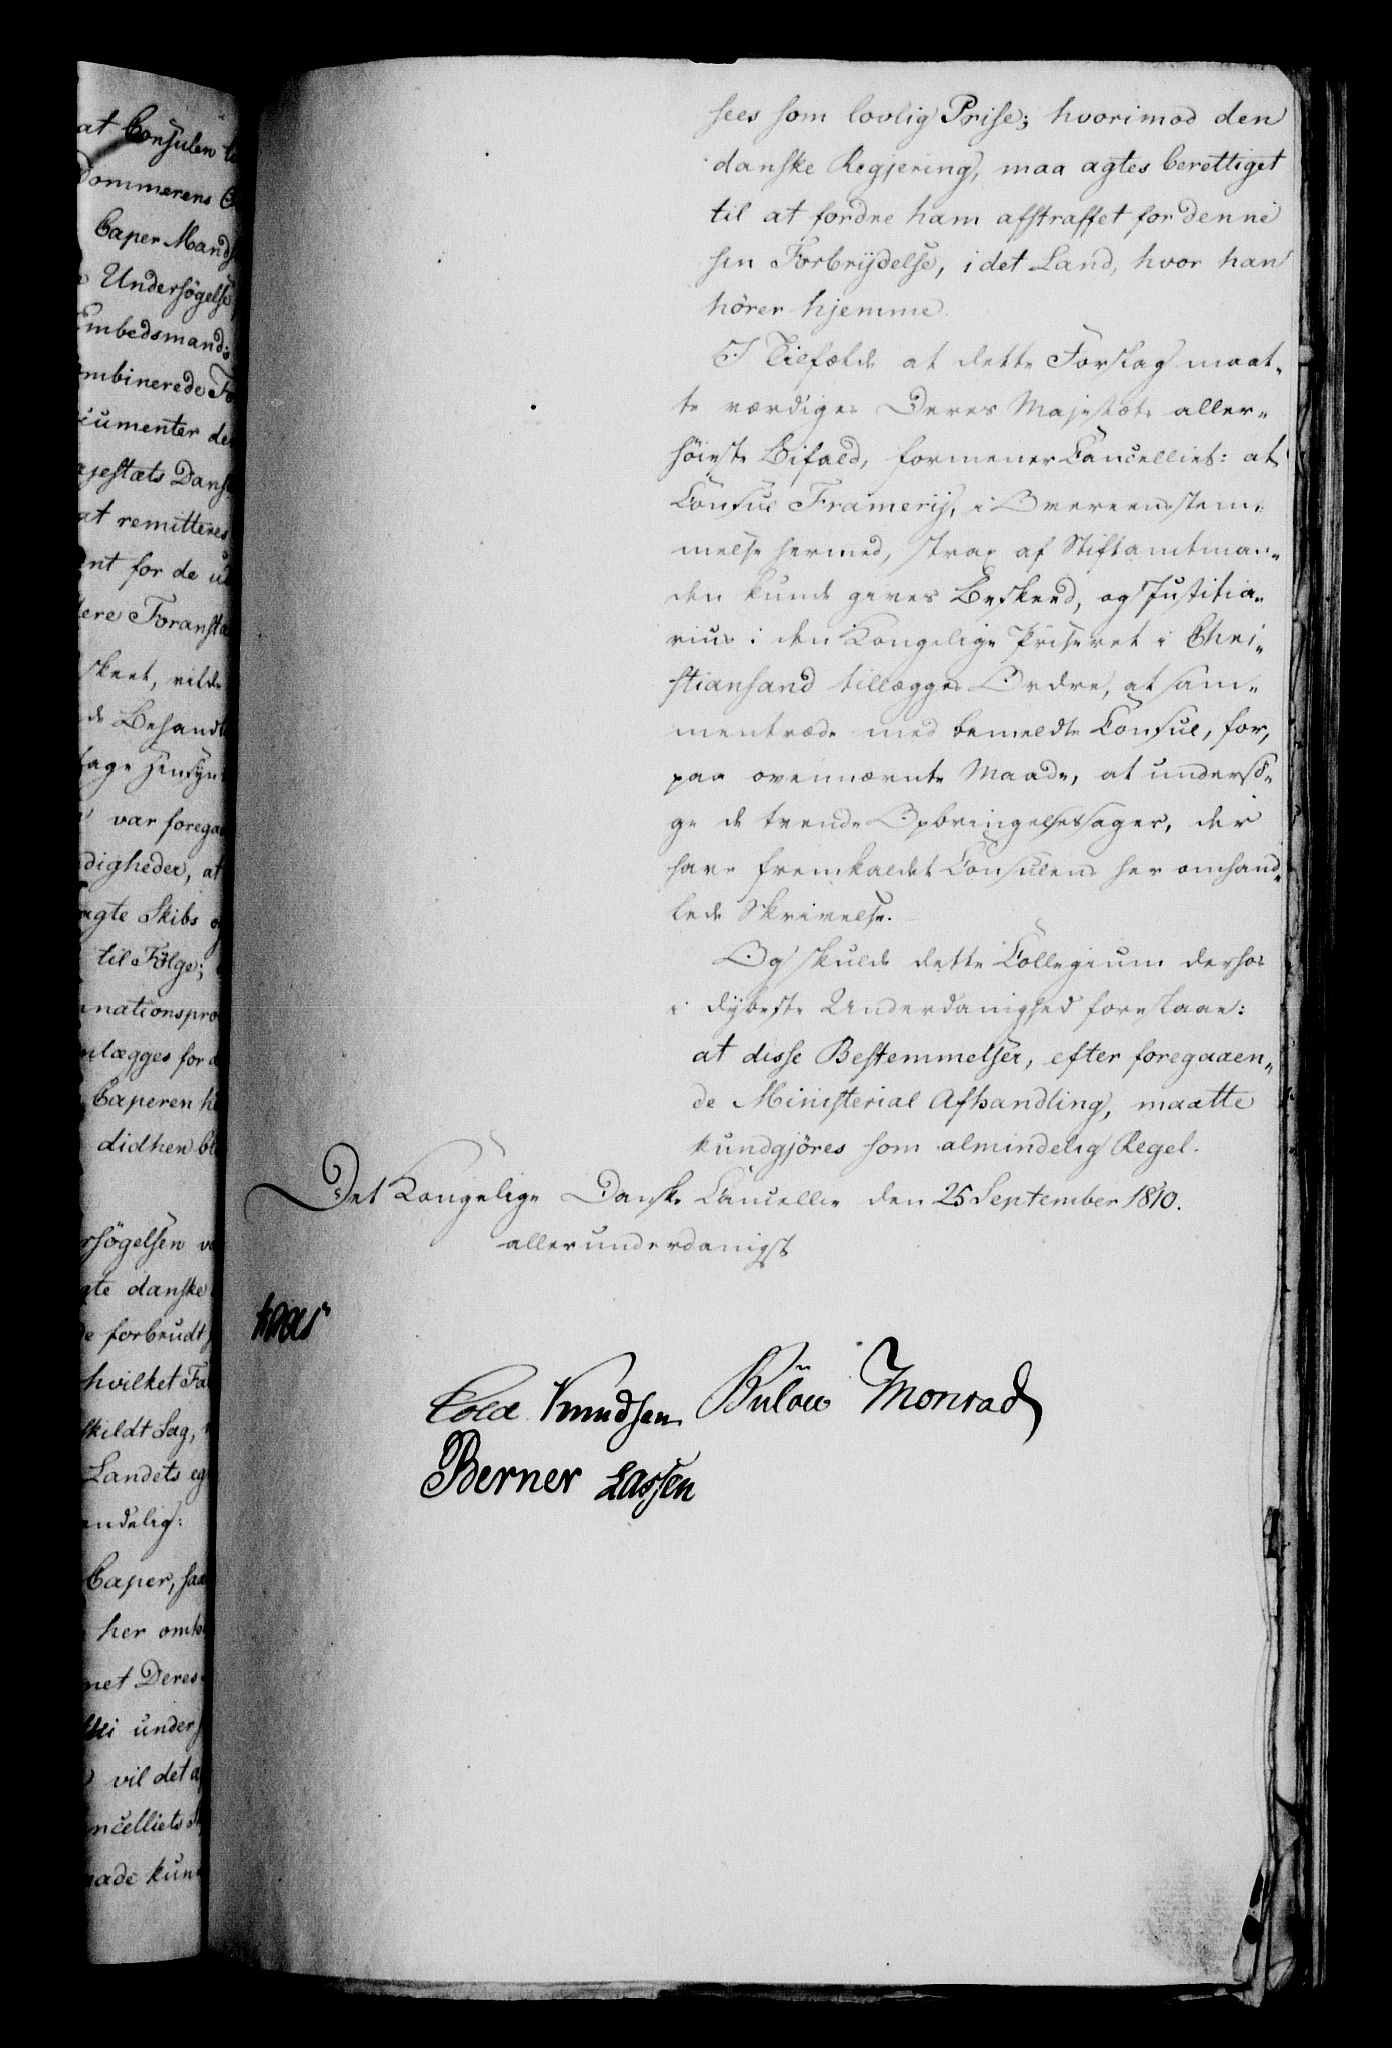 at Consulen
Dommerens
Caper Mands
Undersögelse
Embedsmands
ombinerede
cumenter de
ajestæts Dans
at remitteres
ent for de
dere Foransta
skeet, vilde
de Behand
tage Hensyn
var forega
digheder, at
agte Skibs
til Fölge;
nationspro
nlægges for
Caperen
didhen
rsögelsen
gte danske
de forbrudt
hvilket Fa
skildt Sag,
Landets eg
andelig:
Caper, saa
her omh
net Deres
under
vil det
ncelliets
aade kun
sees som lovlig Prise; hvorimod den
danske Regjering, maa agtes berettiget
til at fordre ham afstraffet for denne
sin Forbrydelse, i det Land, hvor han
hörer hjemme.
I Tilfælde at dette Forslag maat-
te værdiges Deres Majestæts aller-
höieste Bifald, formener Cancelliet: at
Consul Framery, i Overeensstem-
melse hermed, strax af Stiftamtman-
den kunde gives Beskeed, og Justitia-
rius i den Kongelige Priseret i Chri-
stiansand tillægges Ordre, at sam-
mentræde med bemeldte Consul, for,
paa ovennævnte Maade, at undersö-
ge de trende Opbringelsessager, der
have fremkaldet Consulens her omhand-
lede Skrivelse.
Og skulde dette Collegium derhos
i dybeste Underdanighed forestaae:
at disse Bestemmelser, efter foregaaen-
de Ministerial Afhandling, maatte
kundgjöres som almindelig Regel.
Det Kongelige Danske Cancellie den 25 September 1810.
allerunderdanigst
Kaas
Cold Knudsen Bülow Monrad
Berner Lassen